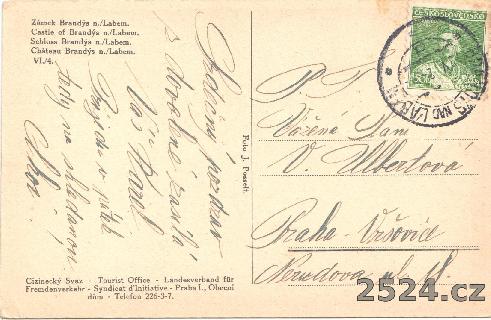 Zámek Brandýs n./Labem.
Castle of Brandýs n./Labem.
Schloss Brandýs n./Labem.
Château Brandýs n./Labem.
VI./4.
Srdečný pozdrav
s dovolené zasílá
Váš Karel
Přijedu v pátek
tedy na shledanou
Foto J. Posselt.
ČESKOSLOVENSKO
50
NAD LABEM
P. T.
Vážená Paní
V. Ulbertová
Praha - Vršovice
Nerudova ul. 11.
Cizinecký Svaz - Tourist Office - Landesverband für
Fremdenverkehr - Syndicat d'Initiative - Praha I., Obecní
dům - Telefon 226-3-7.
2524.cz